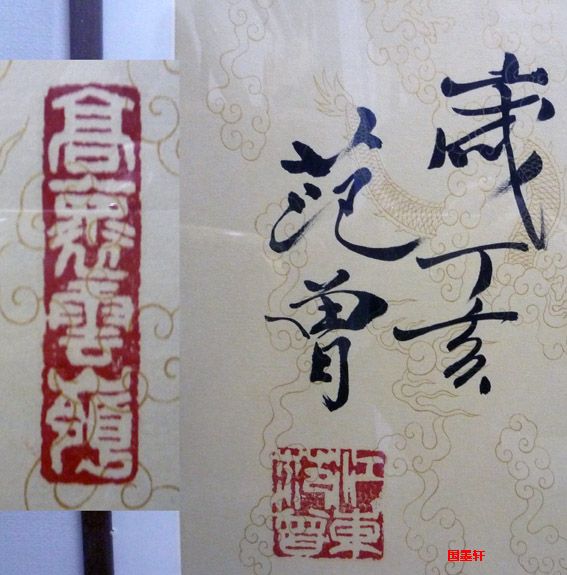 歲丁亥
范曾
江東
范曾
高雲嶺
国墨轩